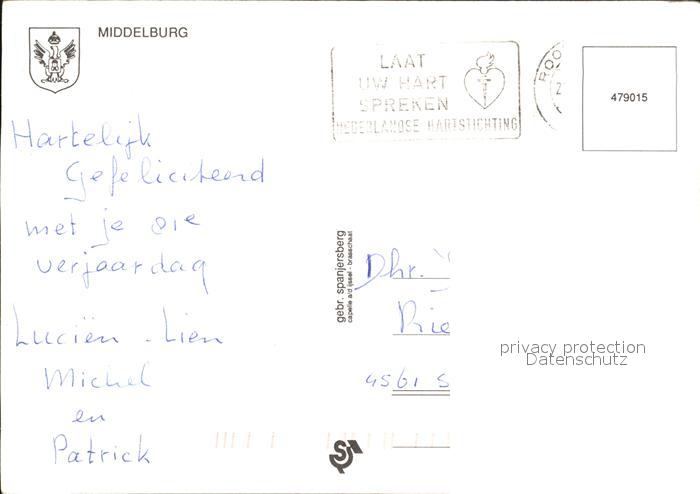 MIDDELBURG
LAAT
UW HART
SPREKEN
NEDERLANDSE HARTSTICHTING
ROO
2
479015
Hartelijk
Gefeliciteerd
met je 81e
verjaardag
Luciën - Lien
Michel
en
Patrick
gebr. spanjersberg
capelle a/d ijssel - brasschaat
Dhr.
4561 S
privacy protection
Datenschutz